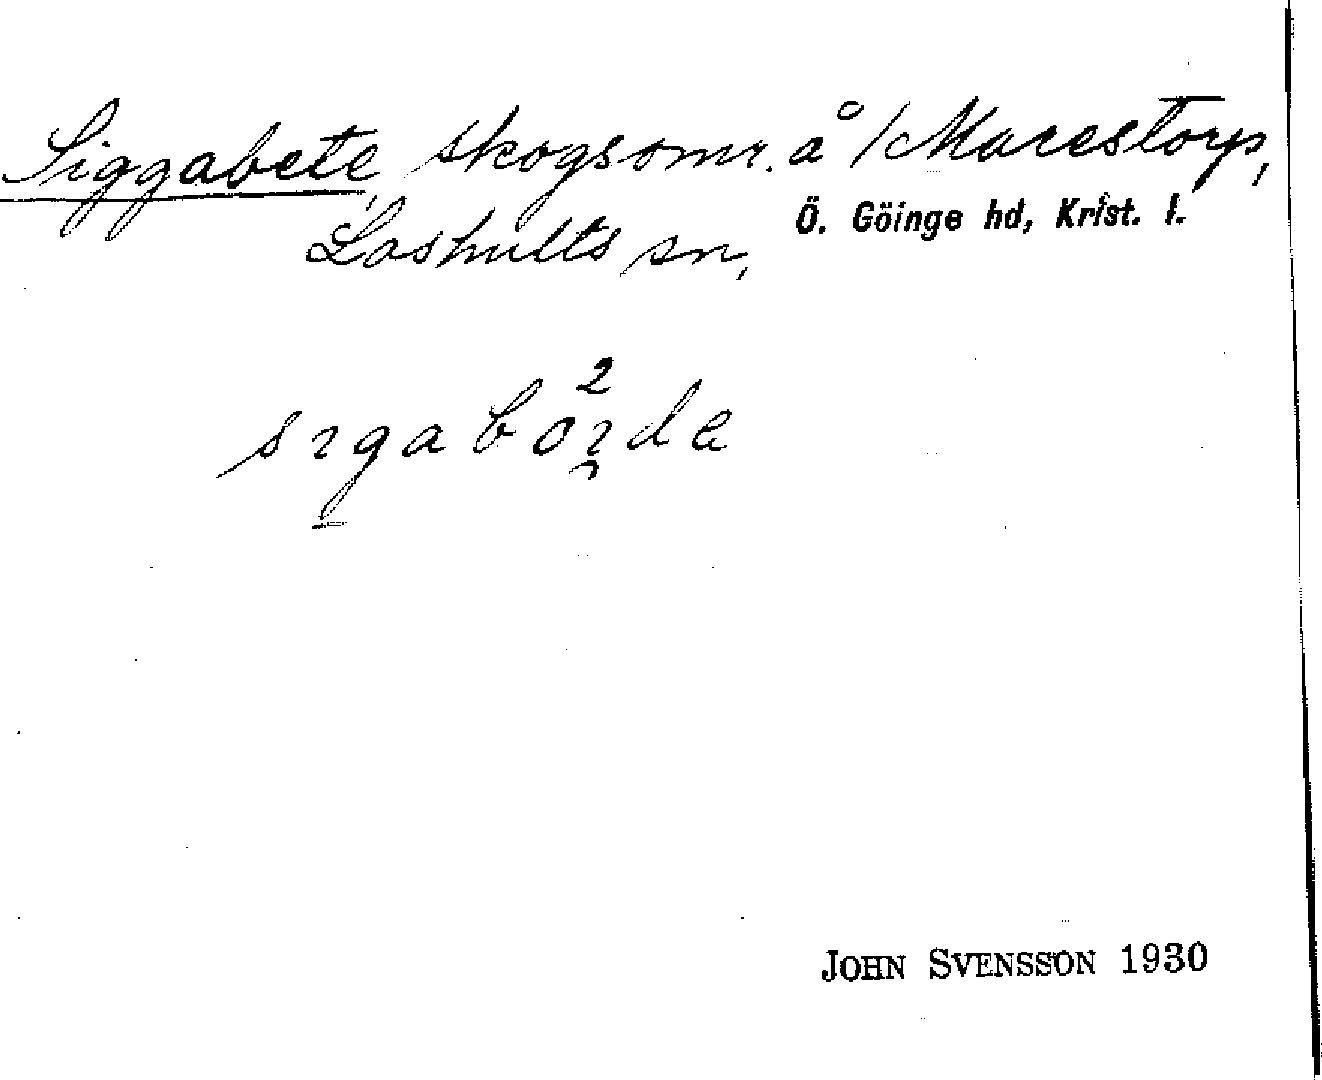 Siggabete, skogsomr. å Marestorp,
Loshults sn, Ö. Göinge hd, Krist. l.
2
JOHN SVENSSON 1930